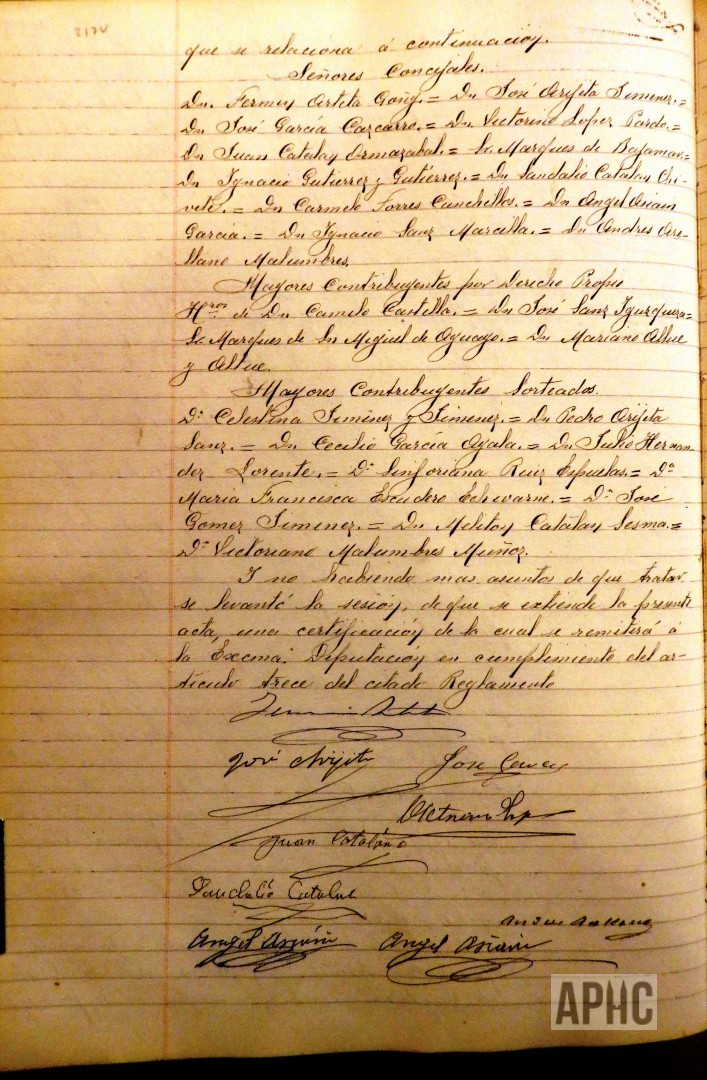 217v
que se relaciona á continuacion.
Señores Concejales.
Dn. Fermin Arteta Goñi.= Dn José Arijita Jimenez.=
Dn José García Carcarro.= Dn Victorino López Pardo.=
Dn Juan Catalan Ormazabal.= Sr Marques de Bajamar.=
Dn Ignacio Gutierrez y Gutierrez.= Dn Sandalio Catalan Chi-
vete.= Dn Carmelo Torres Cunchillos.= Dn Angel Asiain
García.= Dn Ignacio Sanz Marcilla.= Dn Andres Are-
llano Malumbres.
Mayores Contribuyentes por Derecho Propio
Hros de Dn Camilo Castilla.= Dn José Sanz
Sr Marques de Sn Miguel de Aguayo.= Dn Mariano Allue
y Allue.
Mayores Contribuyentes Sorteados.
Dª Celestina Jiménez y Jimenez.= Dn Pedro Arijita
Sanz.= Dn Cecilio García Ayala.= Dn Julio Hernan-
dez Lorente.= Dª Sinforiana Ruiz Espuelas= Dª
Maria Francisca Escudero Echevarne.= Dn José
Gomez Jimenez.= Dn Meliton Catalan Sesma.=
Dn Victoriano Malumbres Muñoz.
Y no habiendo mas asuntos de que tratar
se levantó la sesión, de que se extiende la presente
acta, una certificación de la cual se remitirá á
la Excma. Diputación en cumplimiento del ar-
tículo trece del citado Reglamento
José Arijita José García
Juan Catalán
Sandalio Catalan
Angel Asiain
APHC